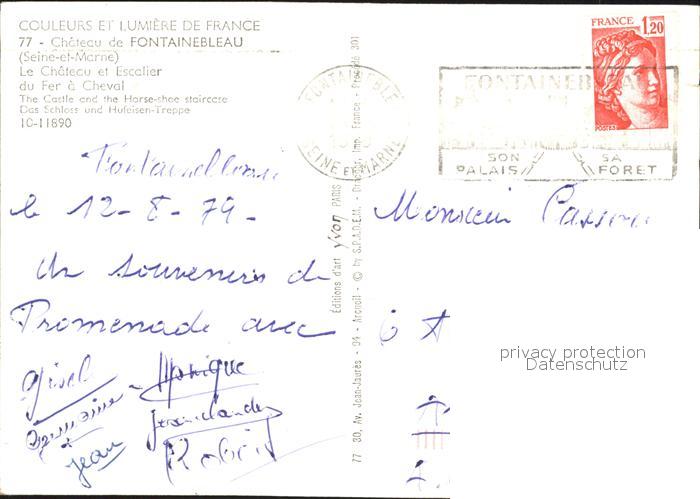 COULEURS ET LUMIÈRE DE FRANCE
77 - Château de FONTAINEBLEAU
(Seine-et-Marne)
Le Château et Escalier
du Fer à Cheval
The Castle and the Horse-shoe staircase
Das Schloss und Hufeisen-Treppe
10-11890
FONTAINEBLEAU
SEINE ET MARNE
FONTAINEBLEAU
SON PALAIS
SA FORET
FRANCE
1,20
POSTES
Éditions d'art yvon PARIS
77 30, Av. Jean-Jaurès - 94 - Arcueil - © by S.P.A.D.E.M. - Draeger, Imp. France - Procédé 301
Fontainebleau
le 12-8-79-
Un souvenirs de
Promenade avec
Gisel
Monique
Germaine
Jean
Robert
Monsieur
6 A
privacy protection
Datenschutz